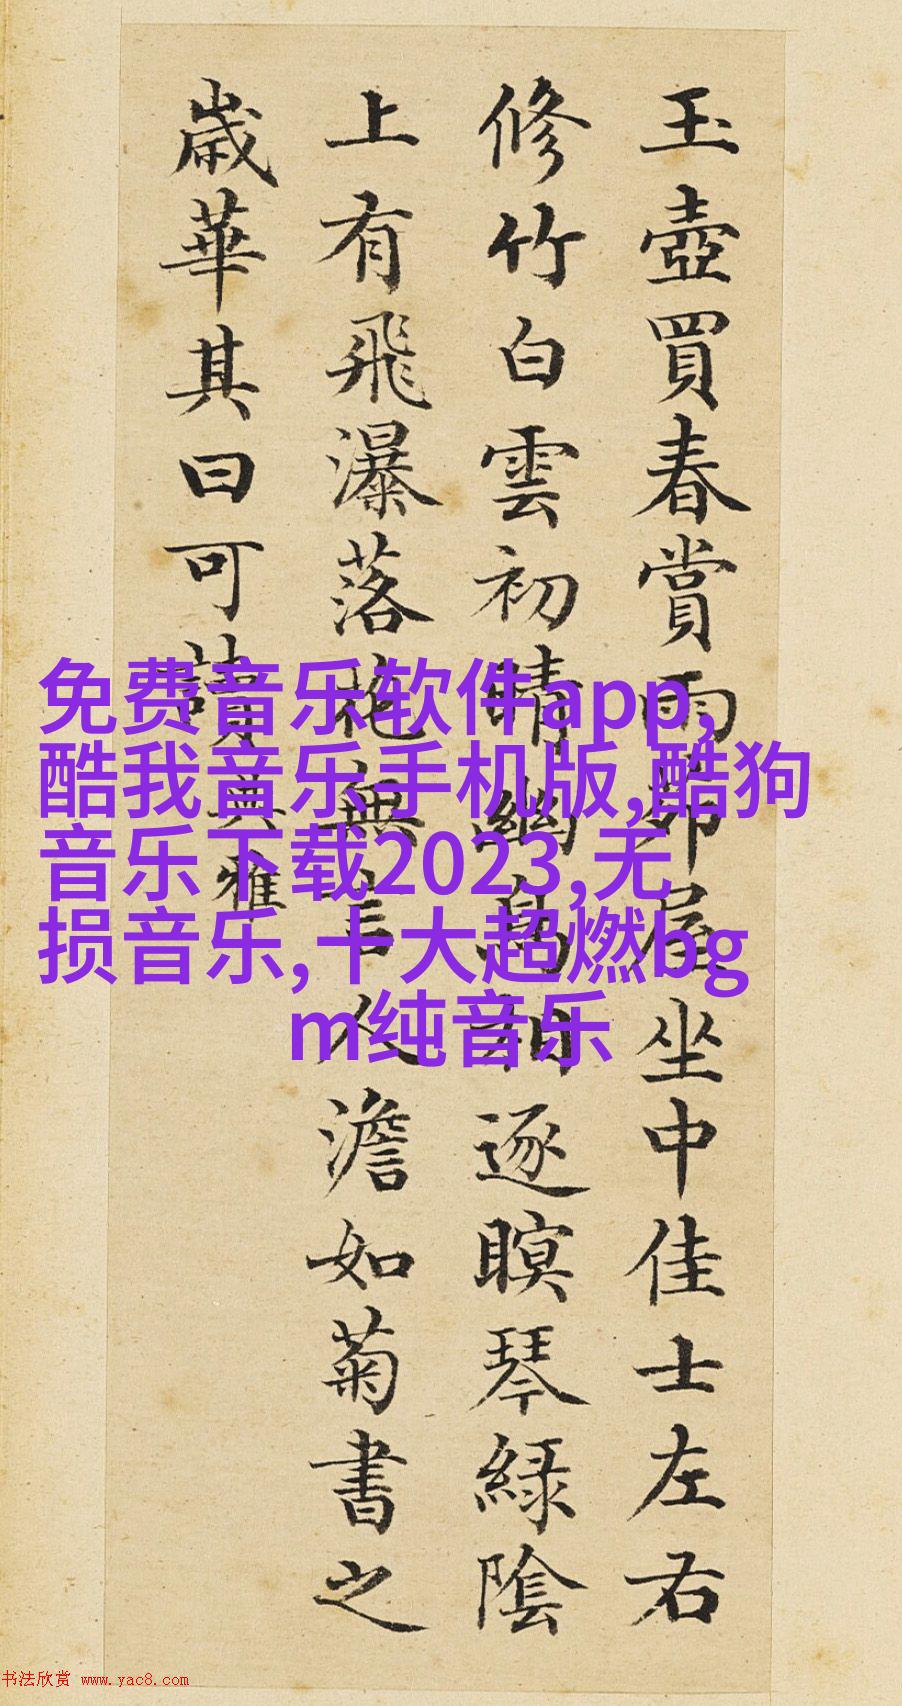 玉壺買春賞雨茆屋坐中佳士左右
修竹白雲初晴幽鳥相逐瞑琴綠陰
上有飛瀑落花無言人澹如菊書之
歲華其曰可讀 典雅
免费音乐软件app,
酷我音乐手机版,酷狗
音乐下载2023,无
损音乐,十大超燃bg
m纯音乐
书法欣赏 www.yac8.com